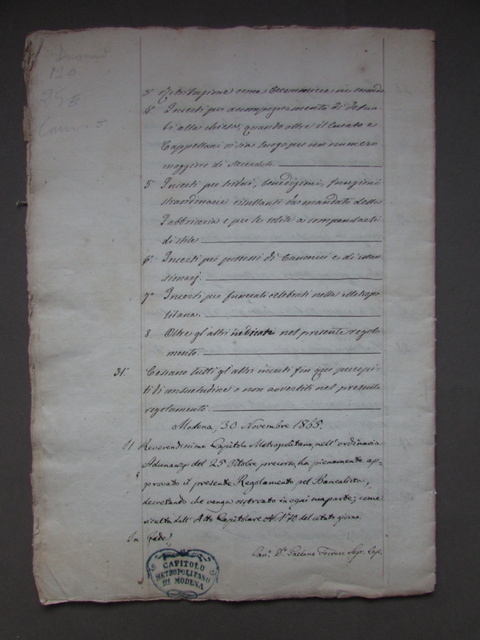 110
4° Incerti per accompagnamento di defun-
bi alla chiesa, quando oltre il Curato e
Cappellani vi sia luogo per un numero
maggiore di Sacerdoti.
5° Incerti per tridui, benedizioni, funzioni
straordinarie risultanti da mandati della
Fabbriceria e per le solite a compensarli
di stile
6° Incerti per possessi di Canonici e di Man-
sionarj.
7° Incerti per funerali celebrati nella Metropo-
litana.
8. Oltre gli altri indicati nel presente regola-
mento.
31° Cessano tutti gli altri incerti fin qui percepi-
ti di consuetudine e non avvertiti nel presente
regolamento.
Modena, 30 Novembre 1865.
Il Reverendissimo Capitolo Metropolitano, nell'ordinaria
Adunanza del 25 Ottobre precorso, ha pienamente ap-
provato il presente Regolamento pel Bancalista,
decretando che venga osservato in ogni sua parte; come
risulta dall'Atto Capitolare al N° 10 del citato giorno.
In fede
Can.° D.r Gaetano
CAPITOLO
METROPOLITANO
DI MODENA